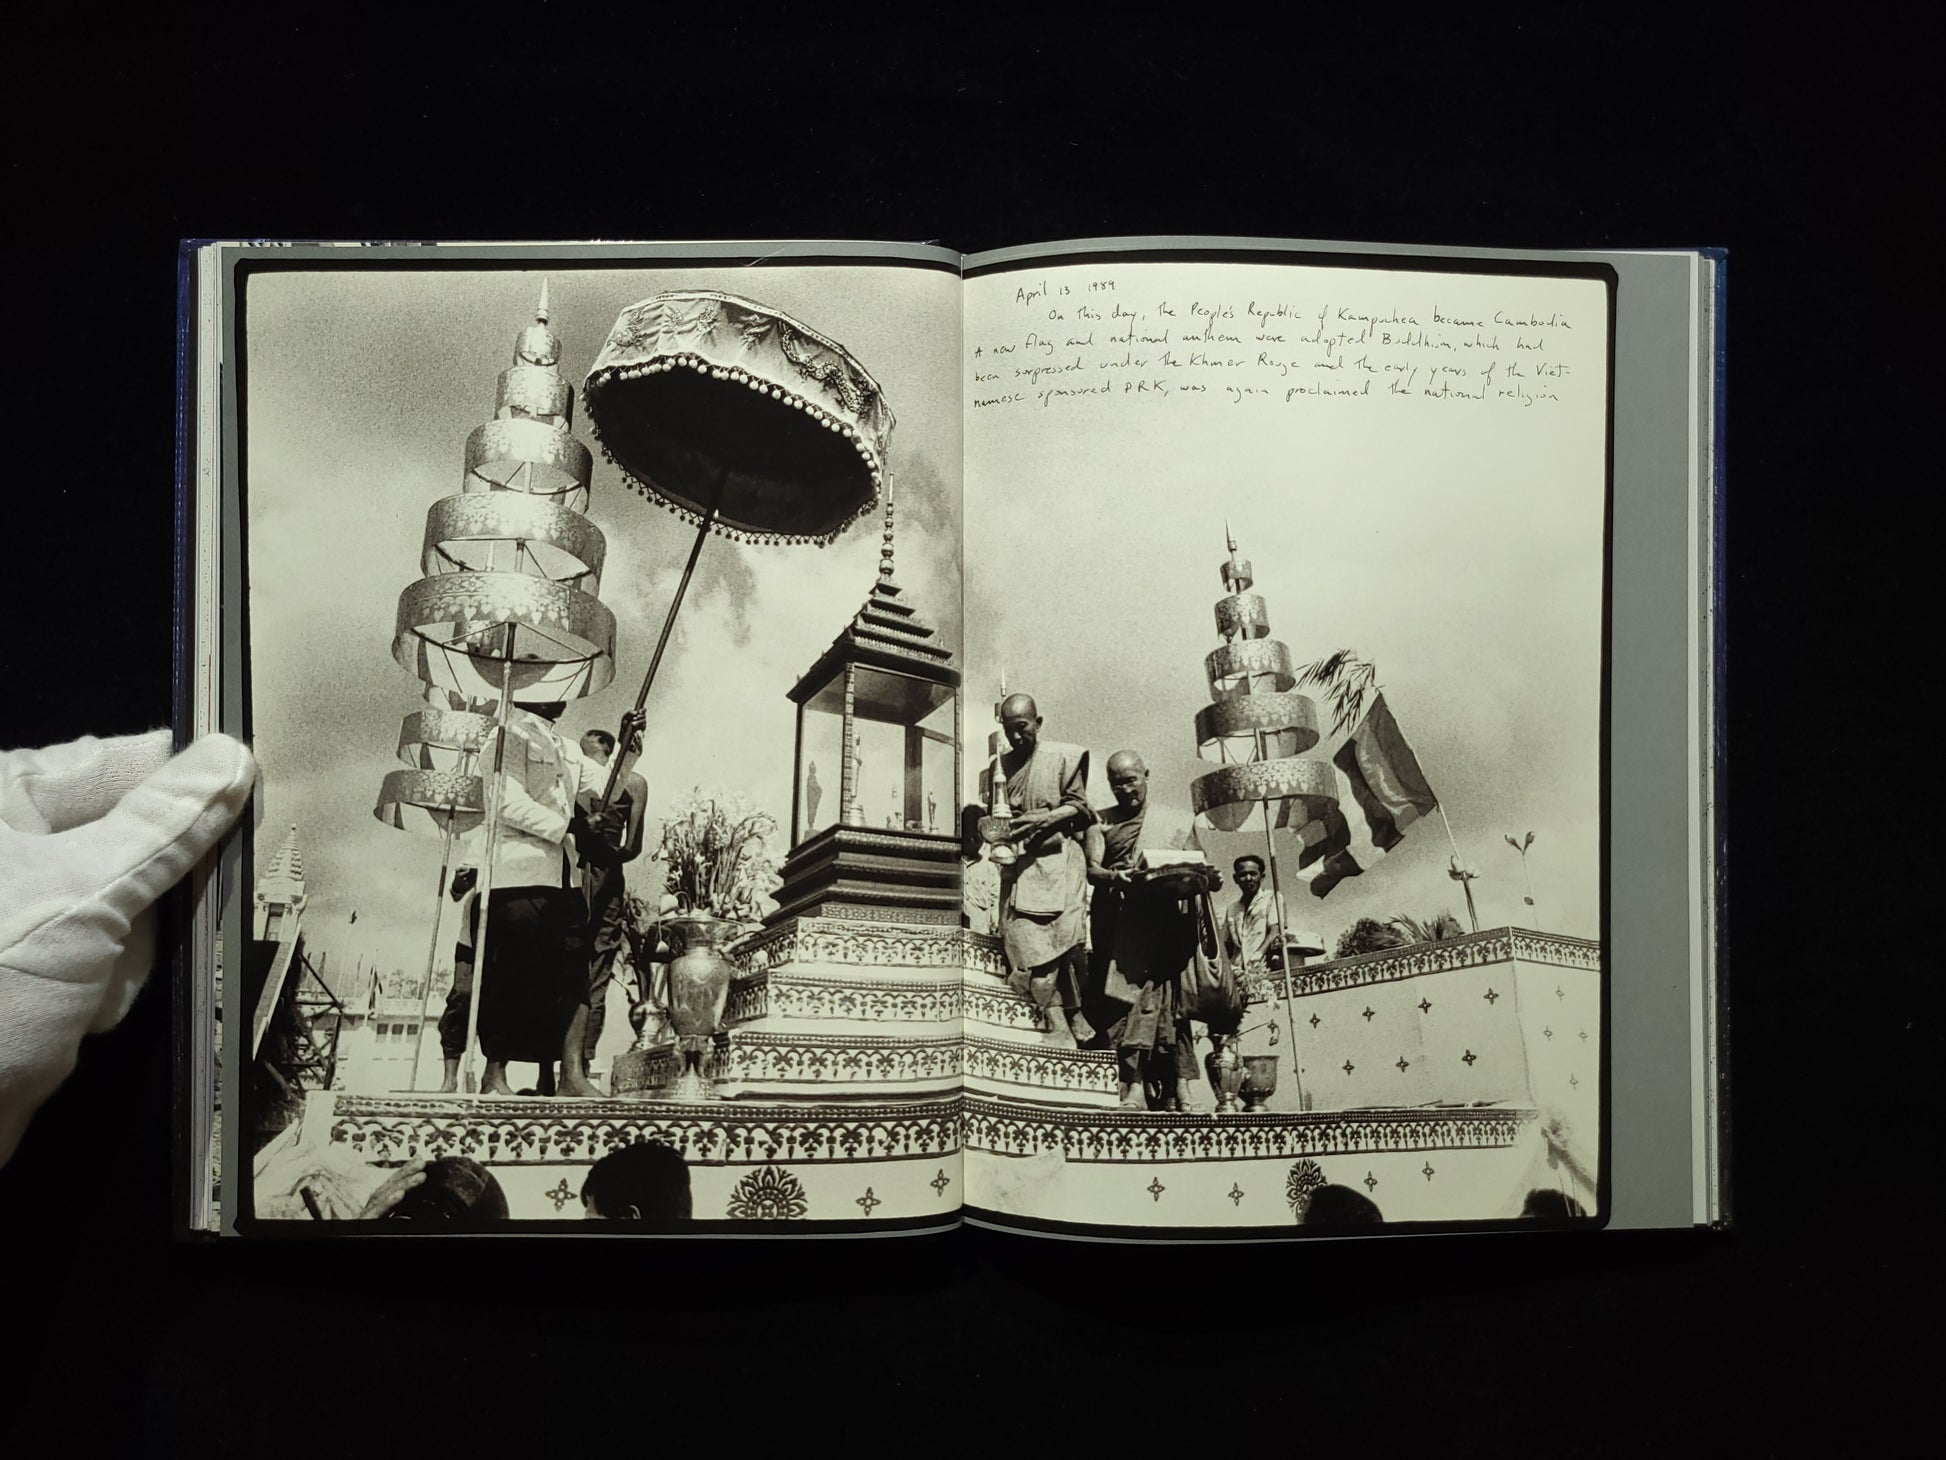 April 13 1989
On this day, the People's Republic of Kampuchea became Cambodia
A new flag and national anthem were adopted Buddhism, which had
been surpressed under the Khmer Rouge and the early years of the Viet-
namese sponsored PRK, was again proclaimed the national religion